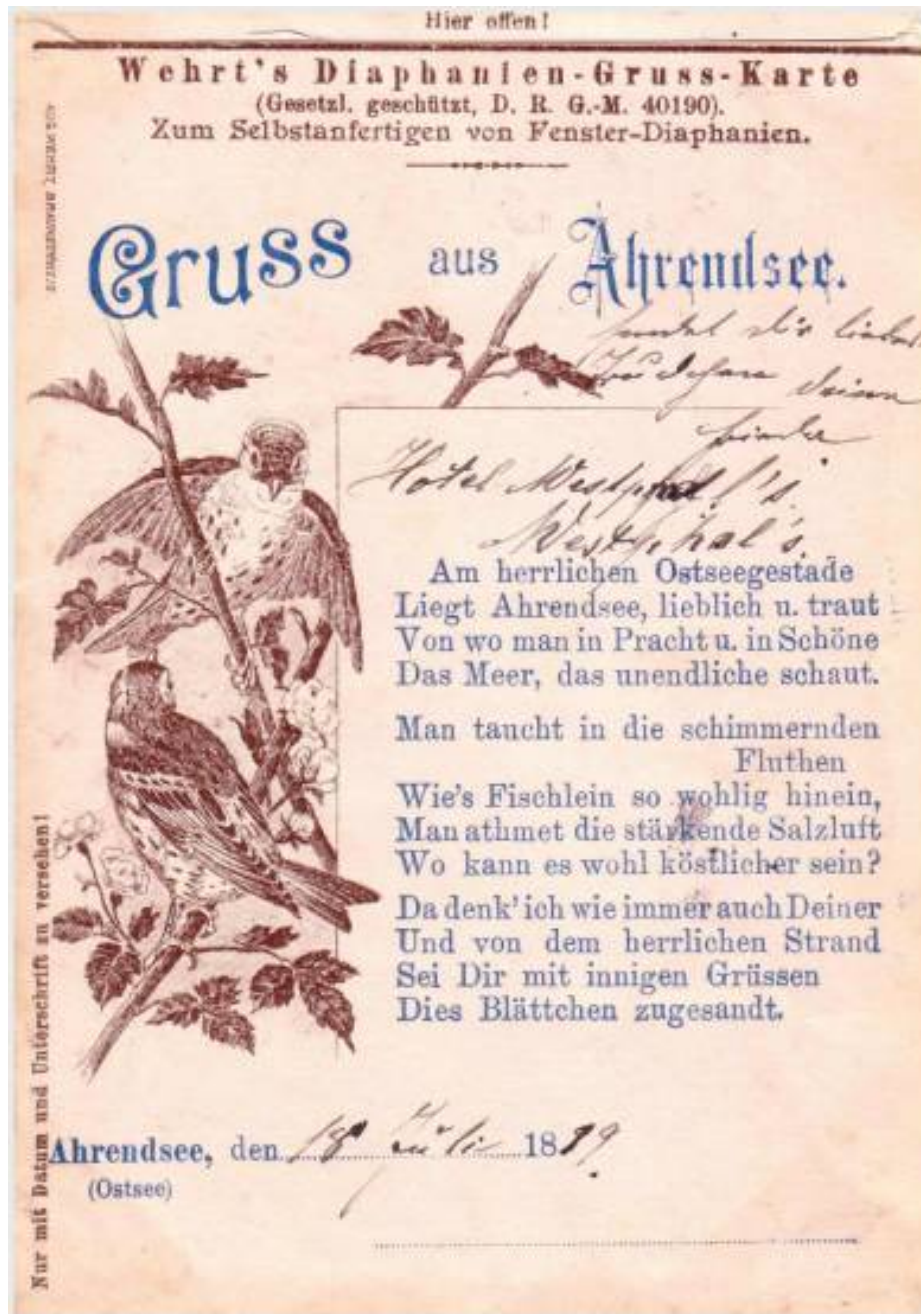 Hier offen!
Wehrt's Diaphanien-Gruss-Karte
(Gesetzl. geschützt, D. R. G.-M. 40190).
Zum Selbstanfertigen von Fenster-Diaphanien.
AUG. WEHRT, BRAUNSCHWEIG
Gruss aus Ahrendsee.
sendet dir liebes
Trudchen deine
Frieda
Hotel Westphal's
Westphal's
Am herrlichen Ostseegestade
Liegt Ahrendsee, lieblich u. traut
Von wo man in Pracht u. in Schöne
Das Meer, das unendliche schaut.
Man taucht in die schimmernden
Fluthen
Wie's Fischlein so wohlig hinein,
Man athmet die stärkende Salzluft
Wo kann es wohl köstlicher sein?
Da denk' ich wie immer auch Deiner
Und von dem herrlichen Strand
Sei Dir mit innigen Grüssen
Dies Blättchen zugesandt.
Nur mit Datum und Unterschrift zu versehen!
Ahrendsee, den 18 Juli 1899.
(Ostsee)